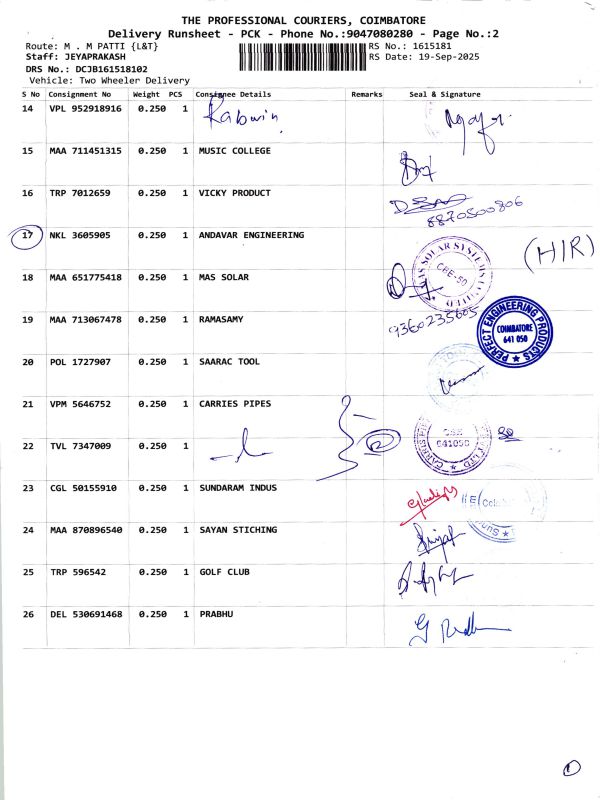 THE PROFESSIONAL COURIERS, COIMBATORE
Delivery Runsheet - PCK - Phone No.:9047080280 - Page No.:2
Route: M . M PATTI {L&T} RS No.: 1615181
Staff: JEYAPRAKASH RS Date: 19-Sep-2025
DRS No.: DCJB161518102
Vehicle: Two Wheeler Delivery
S No Consignment No Weight PCS Consignee Details Remarks Seal & Signature
14 VPL 952918916 0.250 1 Kabwin
15 MAA 711451315 0.250 1 MUSIC COLLEGE
16 TRP 7012659 0.250 1 VICKY PRODUCT
8870500806
17 NKL 3605905 0.250 1 ANDAVAR ENGINEERING (HIR)
18 MAA 651775418 0.250 1 MAS SOLAR MAS SOLAR SYSTEMS CBE-50
19 MAA 713067478 0.250 1 RAMASAMY 9360235605
PERFECT ENGINEERING PRODUCTS COIMBATORE 641 050
20 POL 1727907 0.250 1 SAARAC TOOL
21 VPM 5646752 0.250 1 CARRIES PIPES
22 TVL 7347009 0.250 1 641050
23 CGL 50155910 0.250 1 SUNDARAM INDUS
24 MAA 870896540 0.250 1 SAYAN STICHING
25 TRP 596542 0.250 1 GOLF CLUB
26 DEL 530691468 0.250 1 PRABHU